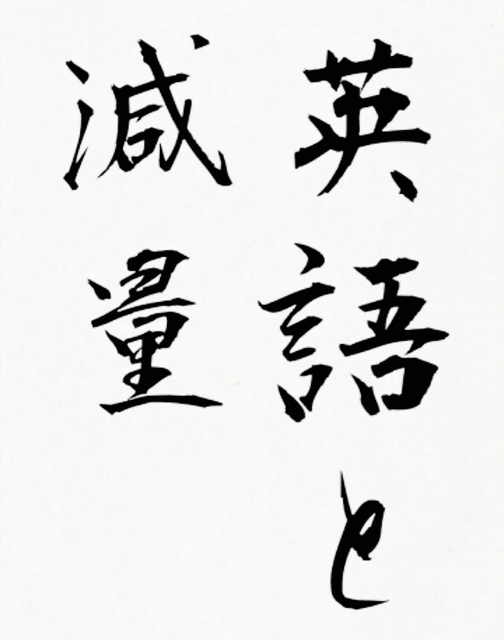 英語と
減量